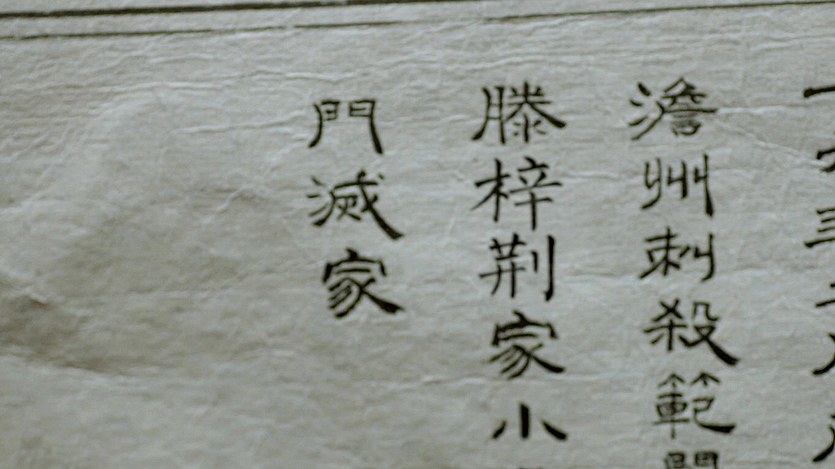 澹州刺殺範閒
滕梓荆家小
門滅家